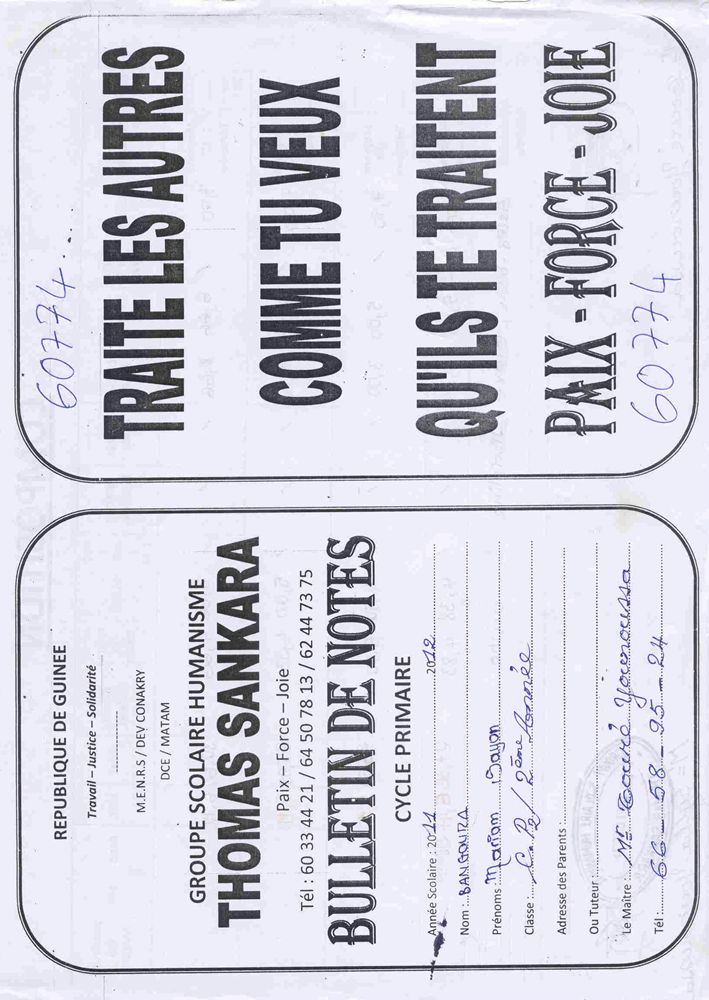 60774
TRAITE LES AUTRES
COMME TU VEUX
QU'ILS TE TRAITENT
PAIX - FORCE - JOIE
60774
REPUBLIQUE DE GUINEE
Travail – Justice – Solidarité
M.E.N.R.S / DEV CONAKRY
DCE / MATAM
GROUPE SCOLAIRE HUMANISME
THOMAS SANKARA
Paix – Force – Joie
Tél : 60 33 44 21 / 64 50 78 13 / 62 44 73 75
BULLETIN DE NOTES
CYCLE PRIMAIRE
Année Scolaire : 2011 2012
Nom : BANGOURA
Prénoms : Mariam Sayon
Classe : 2ème Année
Adresse des Parents :
Ou Tuteur :
Le Maître : Mr Touré Younoussa
Tél : 66 - 58 - 95 - 24